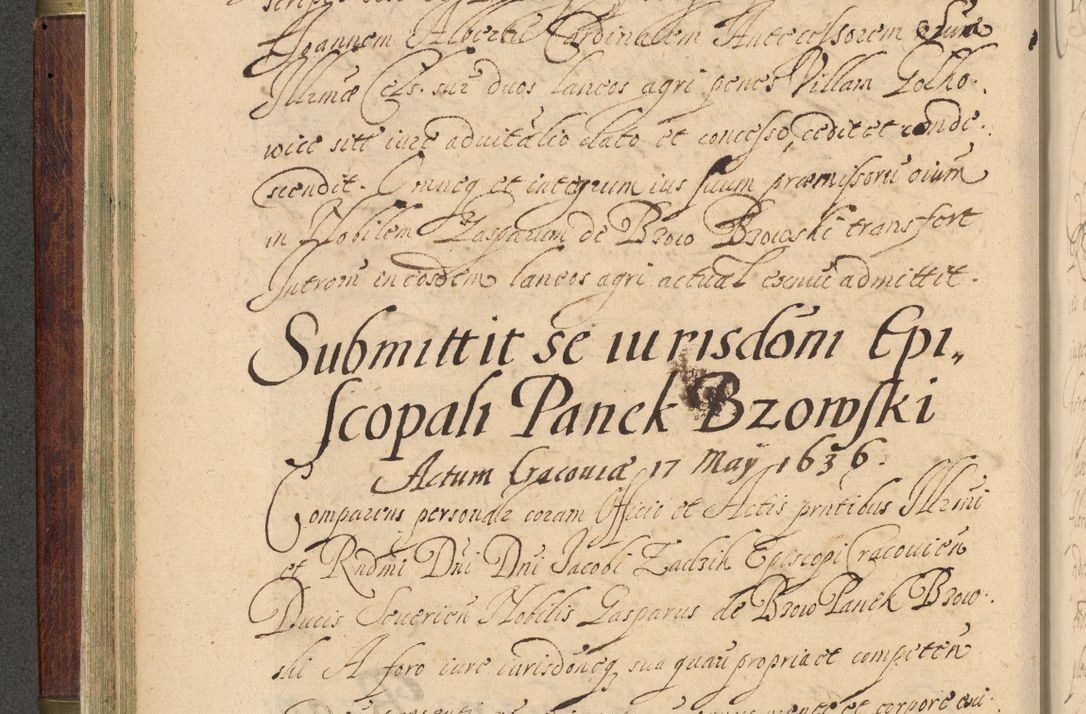 Joannem Alberti Cardinalem Antecessorem
Illrmæ Cels. suæ duos laneos agri penes Villam Golko-
wice siti iure aduitalio dato et concesso, cedit et conde-
scendit. Omneq et integrum ius suum præmissorū oium
in Nobilem Gasparum de Bzow Bzowski transfert
Introm in eosdem laneos agri actual admittit.
Submittit se iurisdōni Epi„
scopali Panek Bzowski
Actum Cracouiæ 17 May 1636.
Comparens personalr coram Officio et Actis prntibus Illrmi
et Rndmi Dni Dni Jacobi Zadzik Episcopi Cracouien
Ducis Seuerien Nobilis Gasparus de Bzow Panek Bzow-
ski A foro iure iurisdoneq sua quauis propria et competen
mente et corpore